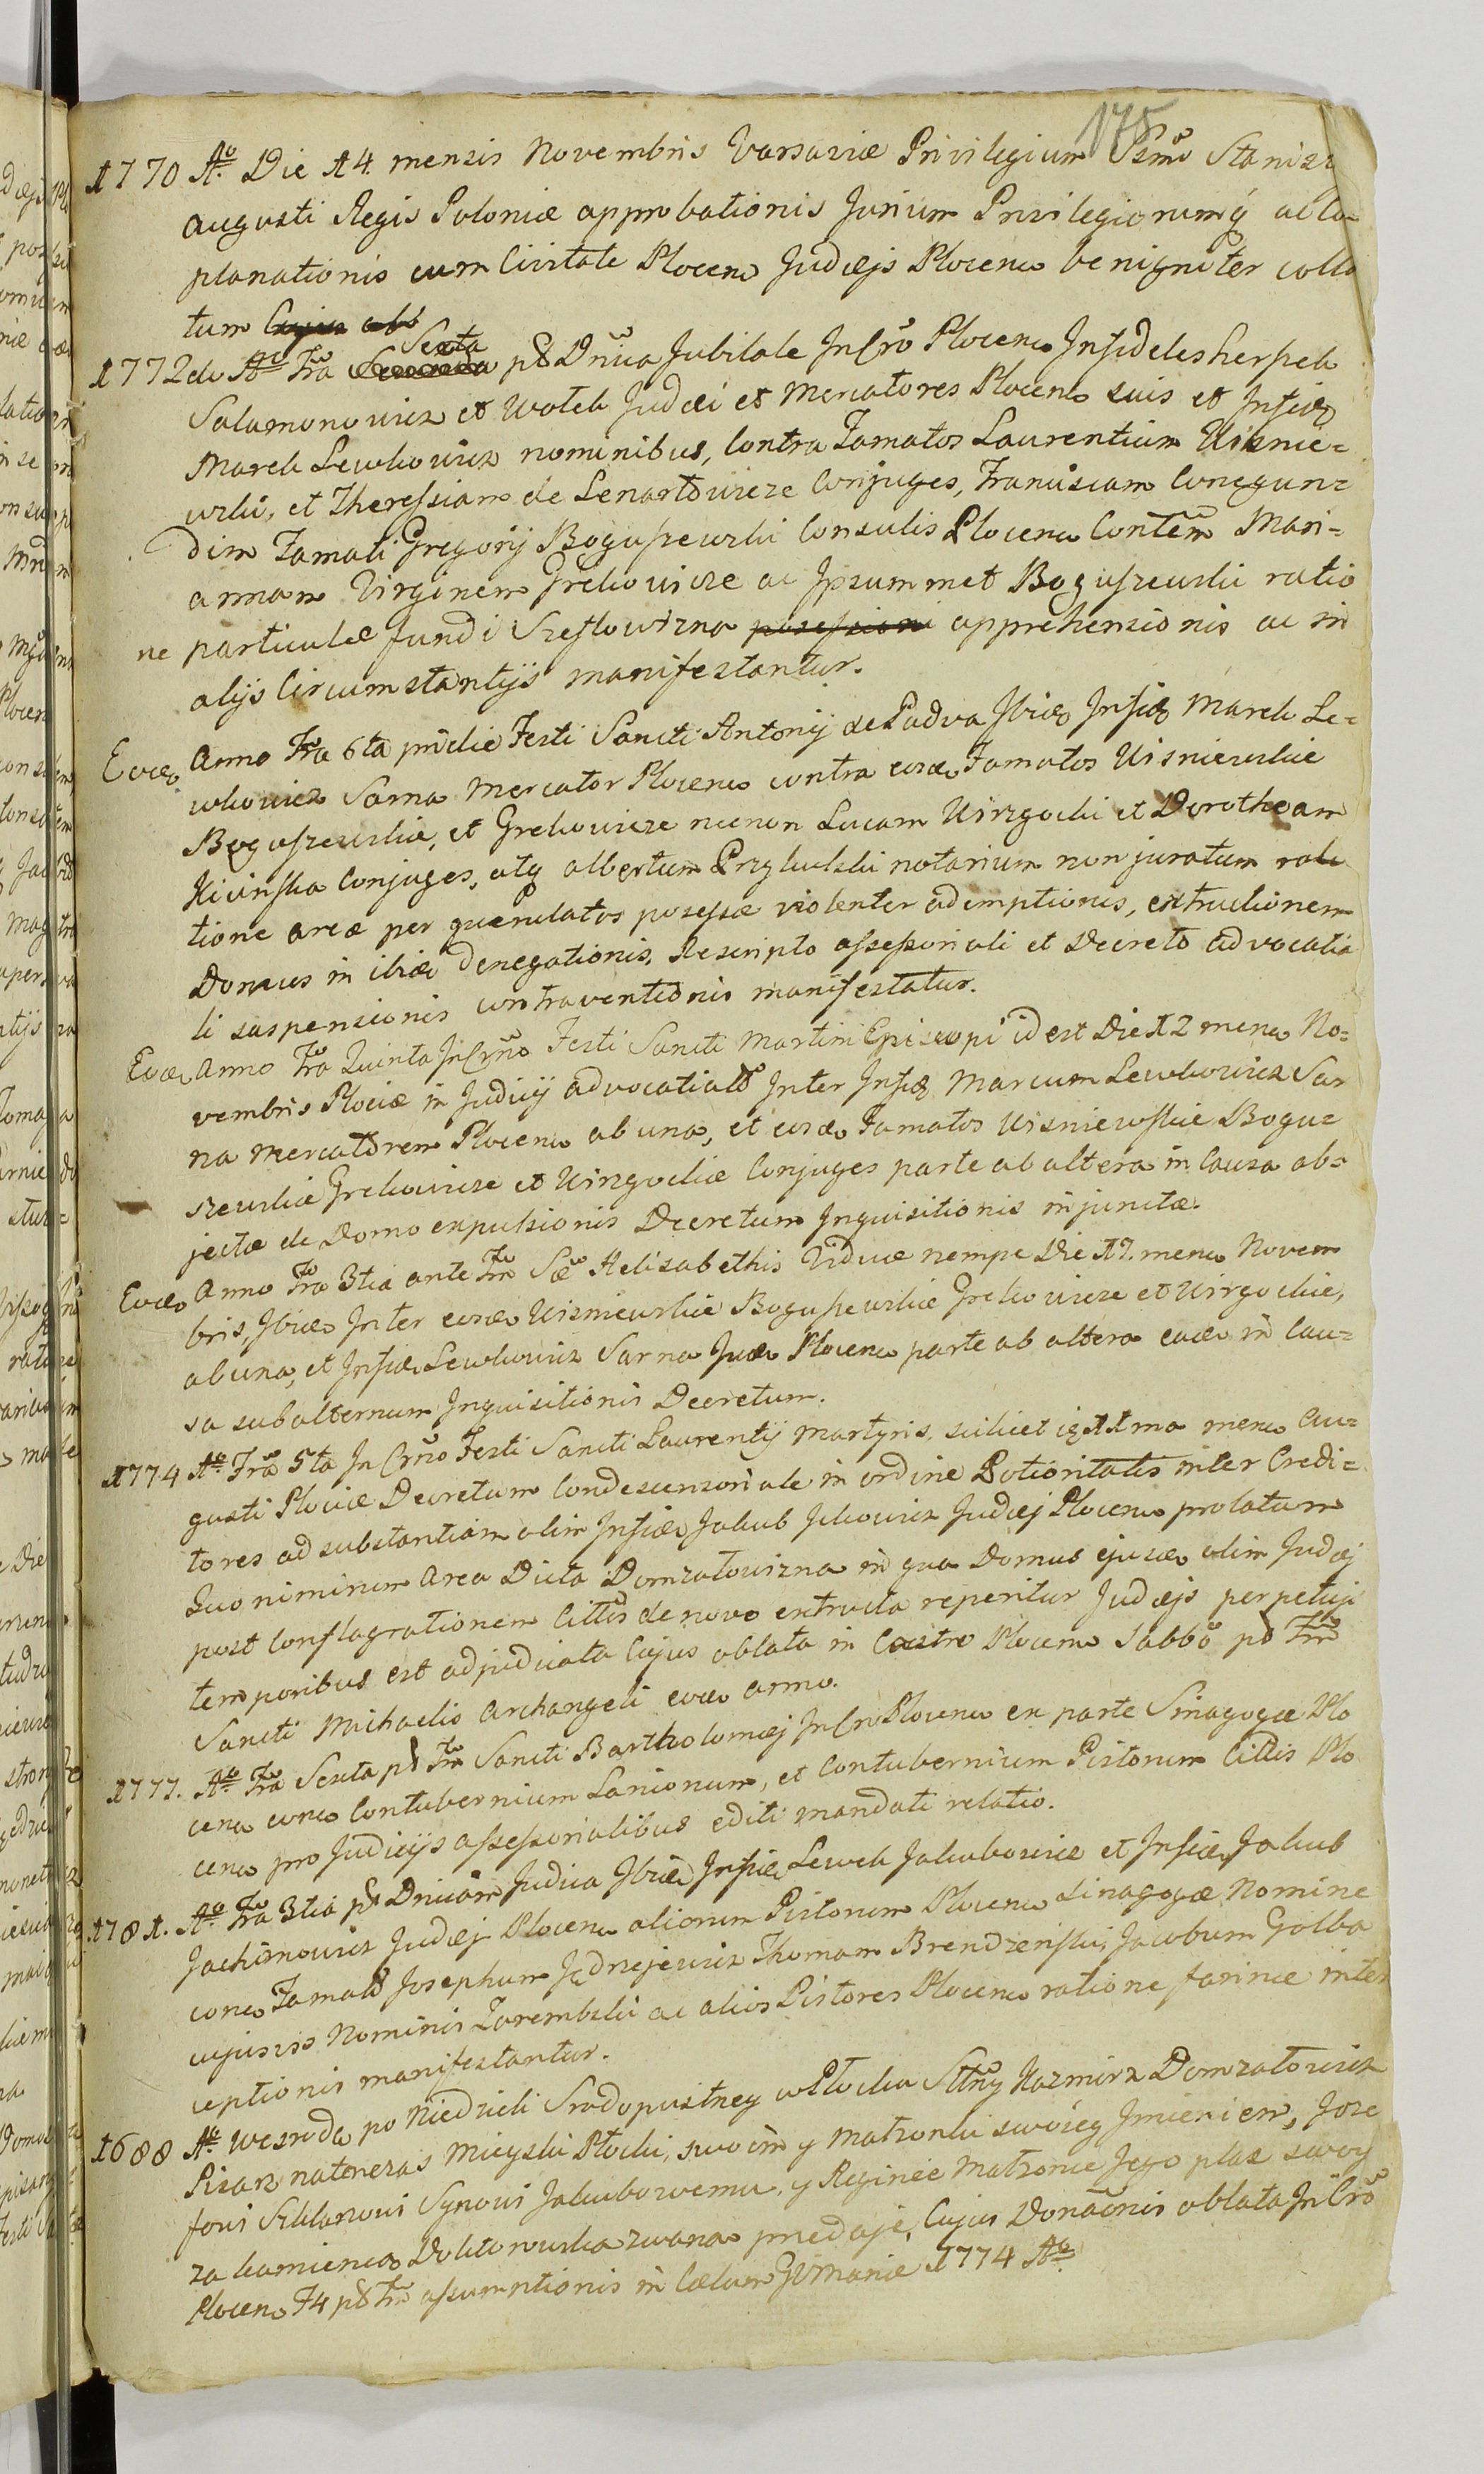 175
1770 Aō Die 14 mensis Novembris Varsaviæ Privilegium Ssmī Stanisł
Augusti Regis Poloniæ approbationis Jurium Privilegiorumq̄ ac lo-
planationis cum Civitate Plocen Judæjs Plocen benigniter colla
tum Cujus obl
1772do Aō Fra Secunda Sexta pš Dnīca Jubilate In Crō Plocen Infideles Herszek
Salamonowicz et Wołek Judæi et Mercatores Plocen suis et Infid
Marek Lewkowicz nominibus, Contra Famatos Laurentium Wisnie=
wski, et Theressiam de Lenartowicze Conjuges, Franciscam Conegun=
dim Famati Gregorij Boguszewski Consulis Plocen Contēm Mari=
annam Virginem Grekowicze ac Ipsummet Boguszewski ratio
ne particulæ fundi Szeflowizna possessioni apprehensionis ac in
alijs Circumstantijs manifestantur.
Eod Anno Fra 6ta pridie Festi Sancti Antonij de Padva Ibid Infid Marek Le=
wkowicz Sarna Mercator Plocen contra eosd Famatos Wisniewskie
Boguszewskie, et Grekowicze necnon Lucam Wirzgocki et Dorotheam
Kicinska Conjuges, atq̄ Albertum Przyłuski notarium non juratum ra
tione areæ per querulatos possessæ violenter ademptionis, extructionem
Domus in ibid denegationis, Rescripto assessoriali et Decreto advocatia
li suspensionis contraventionis manifestatur.
Eod Anno Fra Quinta In Crno Festi Sancti Martini Episcopi id est Die 12 mens No=
vembris Plociæ in Judicij advocatialb Inter Infid Marcum Lewkowicz Sar
na Mercatorem Plocen ab una, et eosd Famatos Wisniewskie Bogu=
szewskie Grekowicze et Wirzgockie Conjuges parte ab altera in Causa ob=
jectæ de Domo expulsionis Decretum Inquisitionis injunctæ.
Eod Anno Fra 3tia ante Fm Sæ Helisabethis Viduæ nempe Die 17. mens Novem
bris, Ibid Inter eosd Wisniewskie Boguszewskie Grekowicze et Wirgockie,
ab una, et Infid Lewkowicz Sarna Jud Plocen parte ab altera eod in Cau=
sa subalternum Inquisitionis Decretum.
1774 Aō Fra 5ta In Crno Festi Sancti Laurentij Martyris, scilicet 11ma mens Au=
gusti Plociæ Decretum Condescensoriale in ordine Potioritatis inter Credi=
tores ad substantiam olim Infid Jakub Ickowicz Judæj Plocen prolatum
Quo nimirum Area Dicta Domzałowizna in qua Domus ejusd olim Judæj
post conflagrationem Cittis de novo extructa reperitur Judæjs perpetujs
temporibus est adjudicata Cujus oblata in Castro Plocen Sabbō pš Fm
Sancti Michaelis Archangeli eod anno.
1777. Aō Fra Sexta pš Fm Sancti Bartholomæj In Cro Plocen ex parte Sinagogæ Plo
cen conc Contubernium Lanionum, et Contubernium Pistorum Cittis Plo
cen pro Judicijs assessorialibus editi mandati relatio.
1781. Aō Fra 3tia pš Dnicam Judica Ibid Infid Lewek Jakubowicz et Infid Jakub
Jachimowicz Judæj Plocen aliorum Pistorum Plocen Sinagogæ Nomine
conc Famatb Josephum Jędrzejewicz Thomam Brendzenski, Jacobum Golba
cujusvis Nominis Zarembski ac alios Pistores Plocen ratione farinæ inter
ceptionis manifestantur.
1688 Aō We srode po Niedzieli Srodopustney w Płocku Sttny Kazmirz Domzałowicz
Pisarz natenczas Mieyski Płocki, swoim y Małzonki swoiey Imieniem, Joze
fowi Szklarzowi Synowi Jakubowemu, y Reginie Małzonce Jego plac swoy
za kamienicą Doktorowska zwaną przedaje, Cujus Donacōnis oblata In Crō
Plocen F4 pš Fm assumptionis in Cælum GVMariæ 1774 Aō